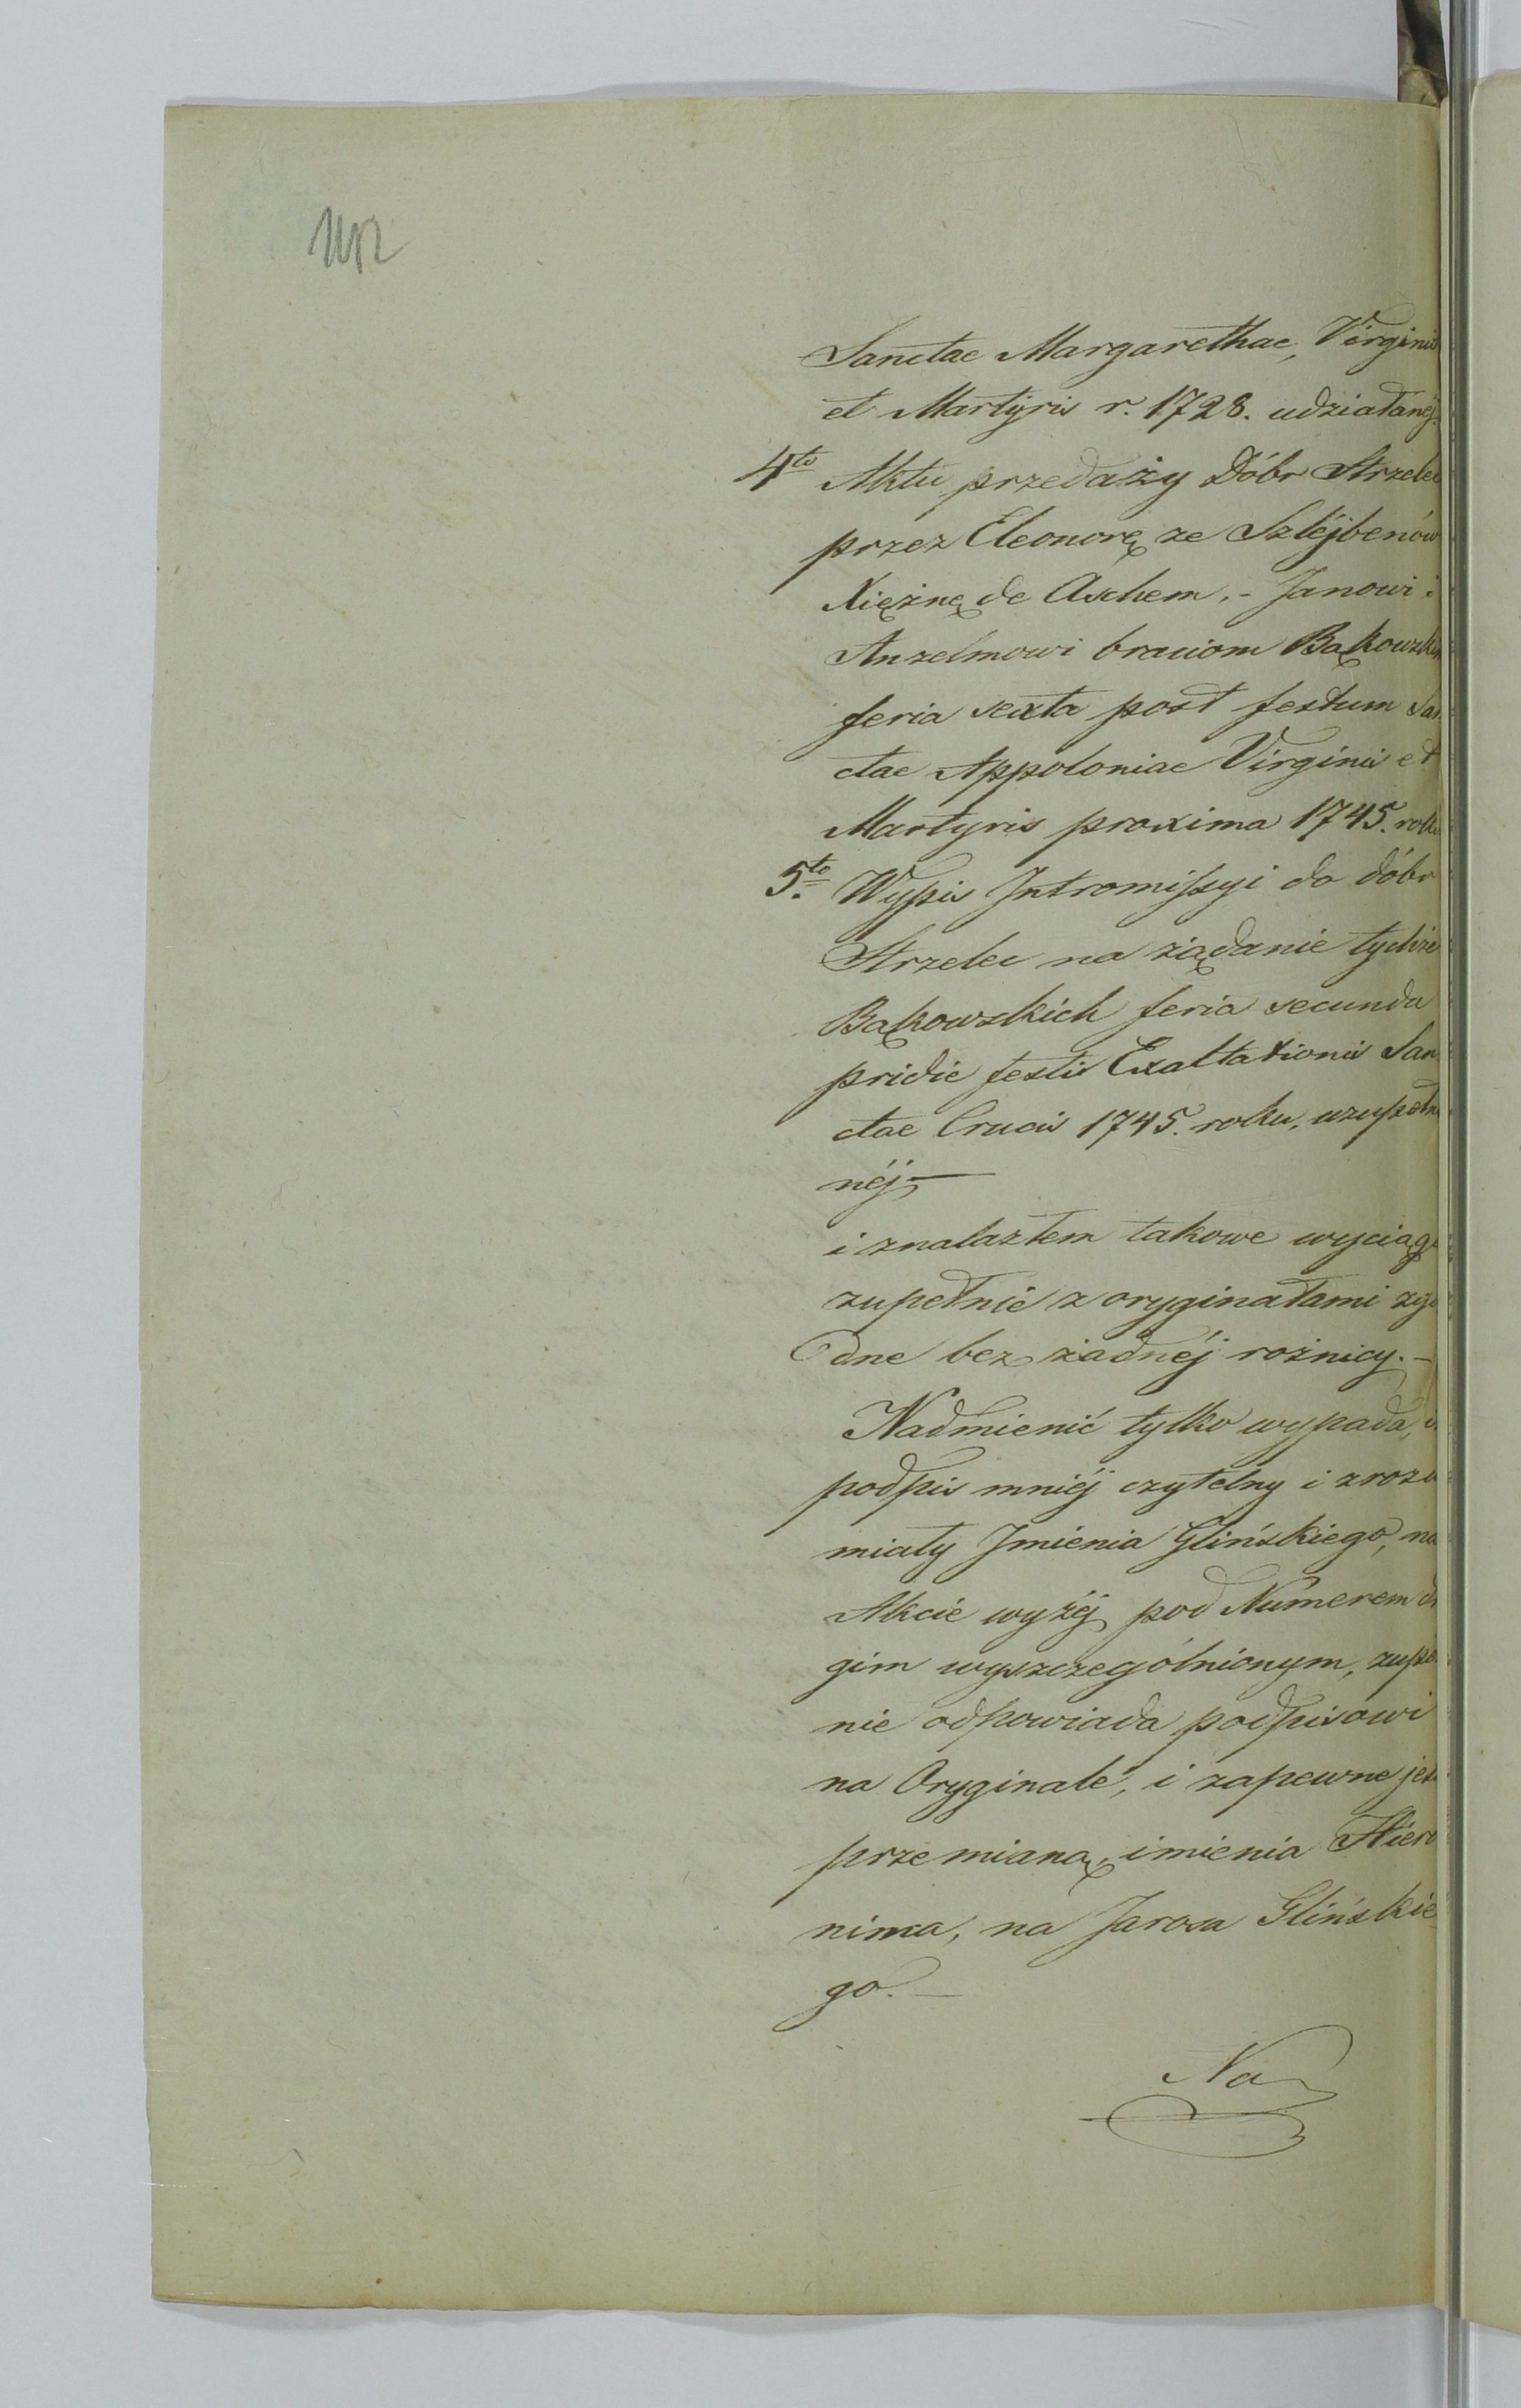 Sanctae Margarethae, Virginis
et Martyris r. 1728. udziałanéj.
4to Aktu przedaży Dóbr Strzelec
przez Eleonorę ze Szlejbenów
Xiężnę de Aschem, - Janowi i
Anzelmowi braciom Bąkowskim
feria sexta post festum San
ctae Appoloniae Virginis et
Martyris proxima 1745. roku
5to Wypis Intromissyi do dóbr
Strzelec na żądanie tychże
Bąkowskich feria secunda
pridie festis Exaltationis San
ctae Crucis 1745. roku,
néj, —
i znalazłem takowe wyciągi
zupełnie z oryginałami zgo
dne bez żadnéj rożnicy. —
Nadmienić tylko wypada,
podpis mniéj czytelny i zrozu
miały Imienia Glińskiego, na
Akcie wyżéj pod Numerem dru
gim wyszczególnionym, zupeł
nie odpowiada podpisowi
na Oryginale, i zapewne jest
przemianą, imienia Hiero
nima, na Jarosa Glińskie
go. —
Na